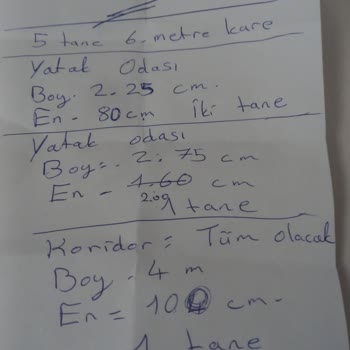 5 tane 6. metre kare
Yatak Odası
Boy. 2.25 cm.
En - 80cm İki tane
Yatak odası
Boy=. 2.75 cm
En - 1.60 cm
200
1 tane
Koridor = Tüm olacak
Boy - 4 m
En = 100 cm -
1 tane